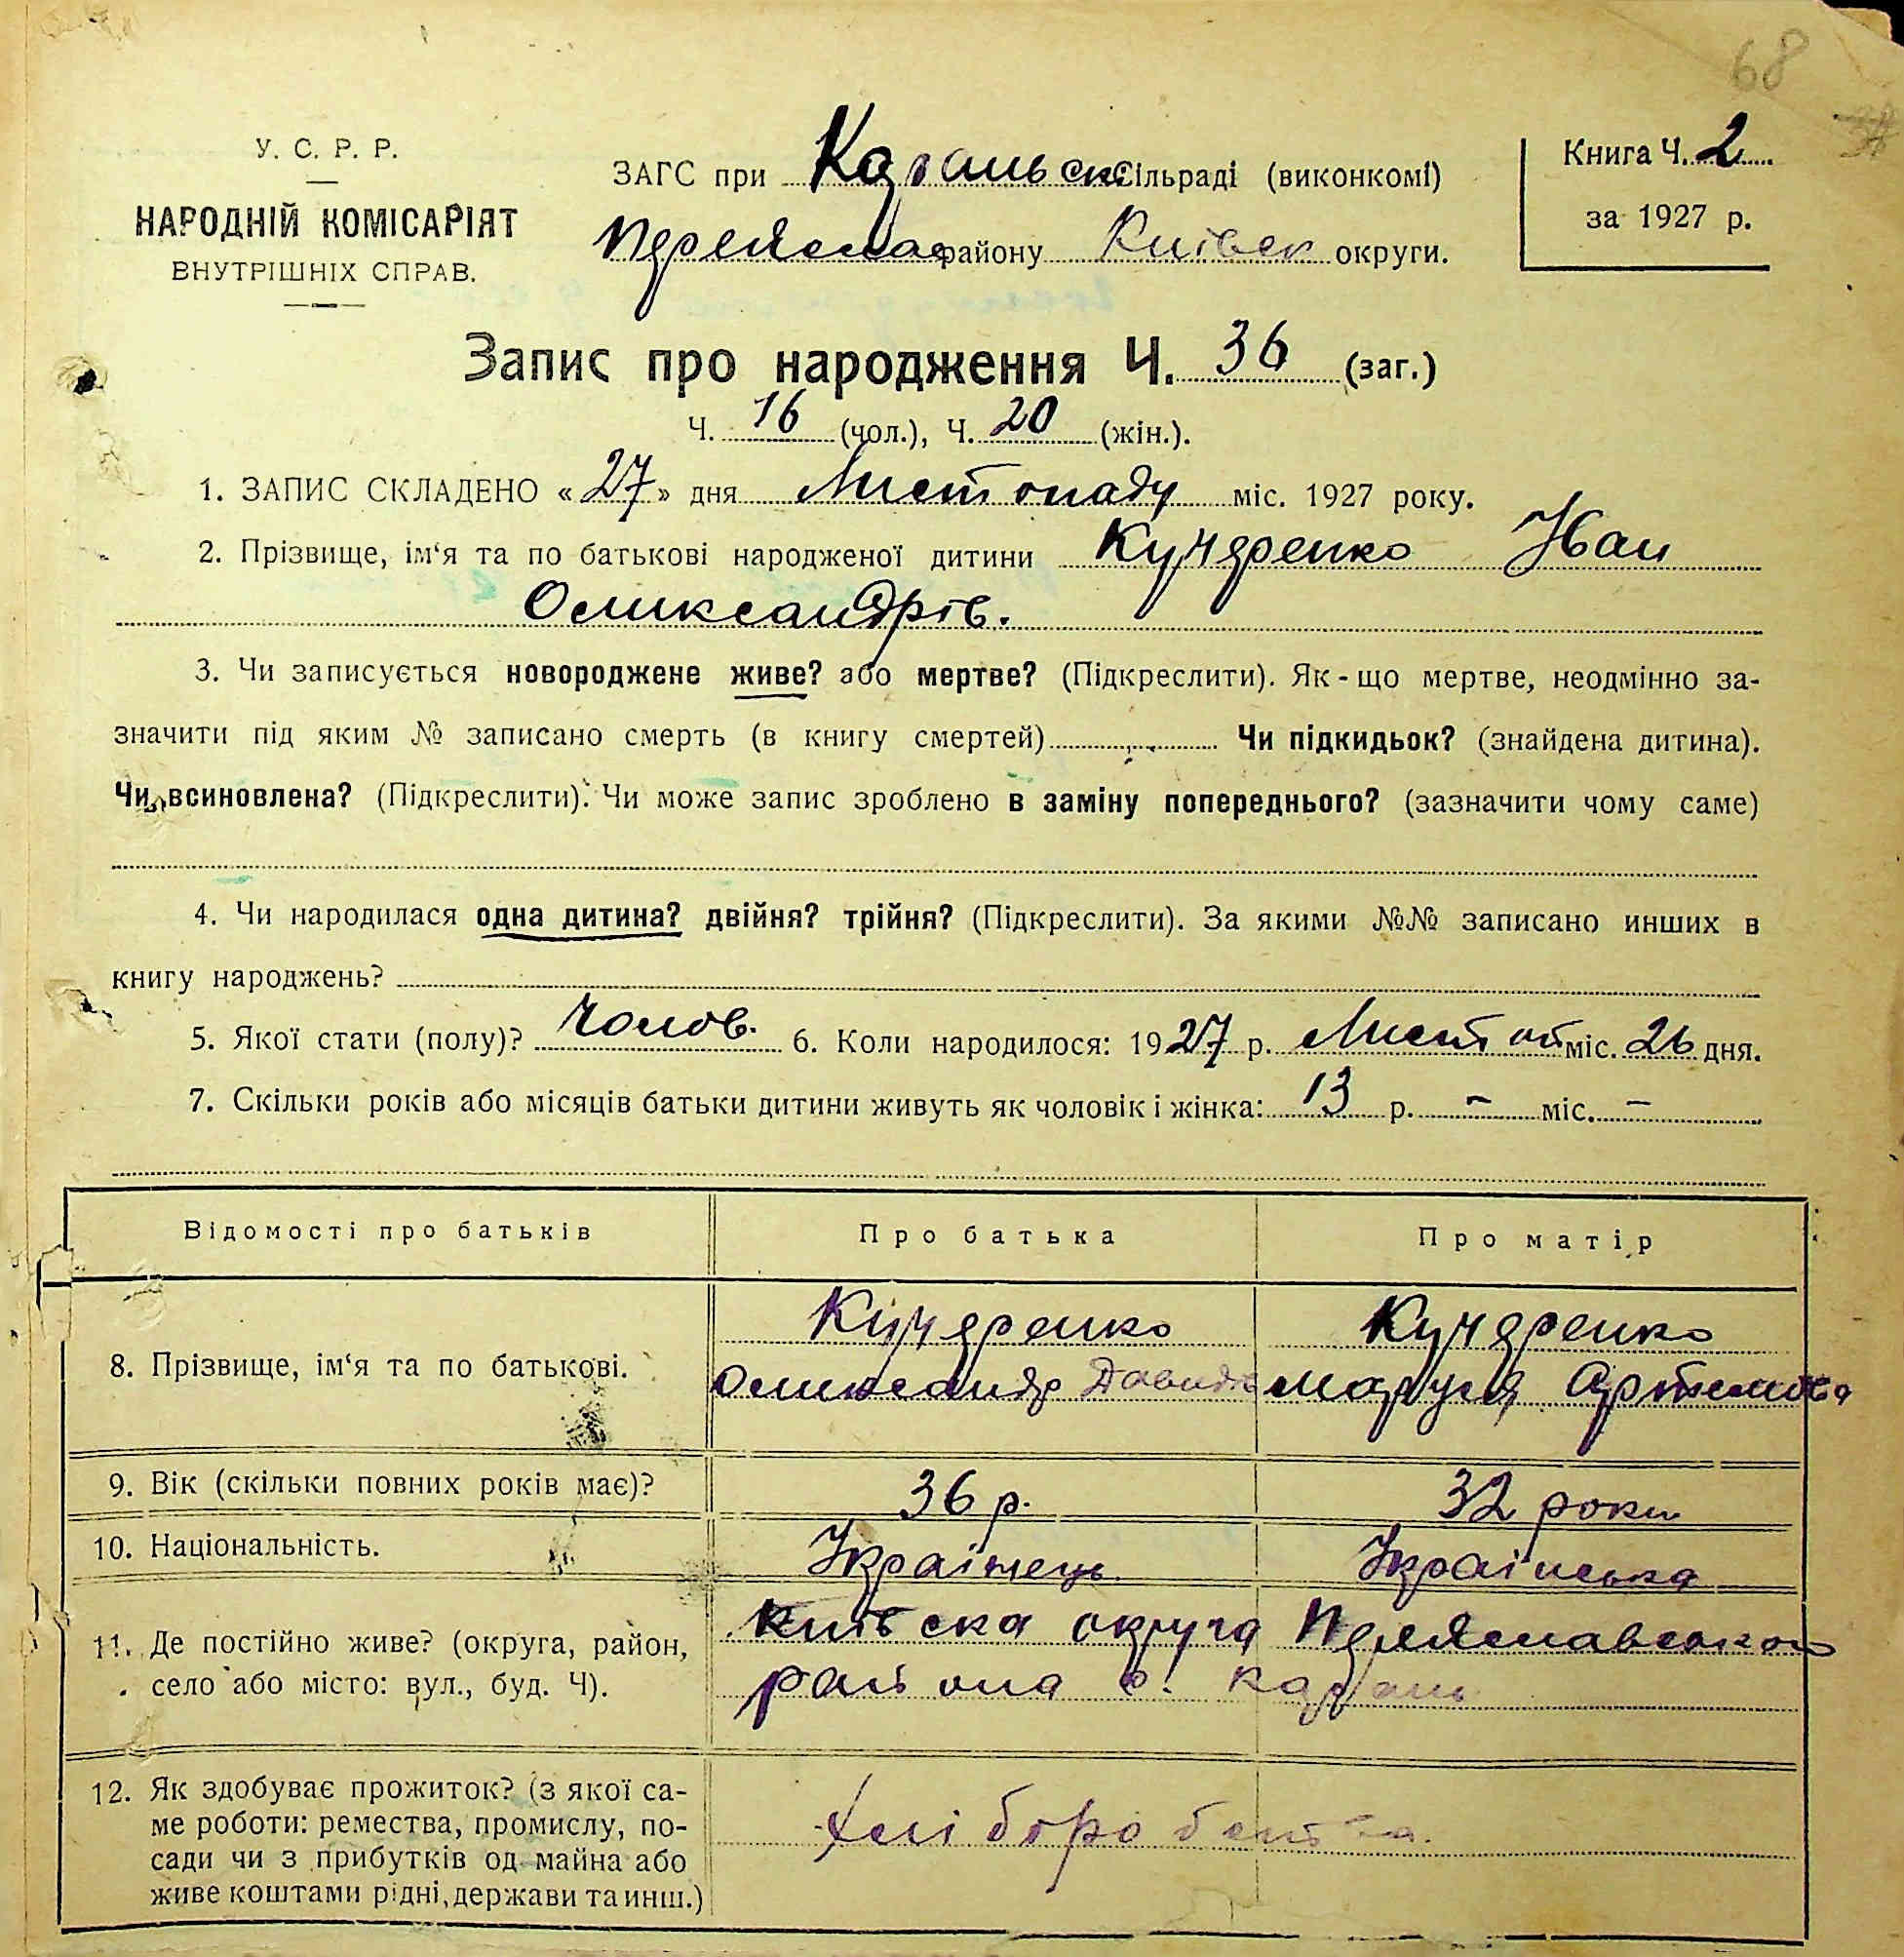 68
У. С. Р. Р.
НАРОДНІЙ КОМІСАРІЯТ
ВНУТРІШНІХ СПРАВ.
ЗАГС при сільраді (виконкомі)
Переяслав району Київск округи.
Книга Ч. 2
за 1927 р.
Запис про народження Ч. 36 (заг.)
Ч. 16 (чол.), Ч. 20 (жін.).
1. ЗАПИС СКЛАДЕНО « 27 » дня Листопаду міс. 1927 року.
2. Прізвище, ім‘я та по батькові народженої дитини Кучеренко Іван
Олександрів.
3. Чи записується новороджене живе? або мертве? (Підкреслити). Як-що мертве, неодмінно за-
значити під яким № записано смерть (в книгу смертей) Чи підкидьок? (знайдена дитина).
Чи всиновлена? (Підкреслити). Чи може запис зроблено в заміну попереднього? (зазначити чому саме)
4. Чи народилася одна дитина? двійня? трійня? (Підкреслити). За якими №№ записано инших в
книгу народжень?
5. Якої стати (полу)? Чолов. 6. Коли народилося: 1927 р. Листоп міс. 26 дня.
7. Скільки років або місяців батьки дитини живуть як чоловік і жінка: 13 р. – міс. –
Відомості про батьків Про батька Про матір
Кучеренко Кучеренко
8. Прізвище, ім‘я та по батькові. Олександр Давидів Маруся Артемова
9. Вік (скільки повних років має)? 36 р. 32 роки
10. Національність. Українець Українська
11. Де постійно живе? (округа, район, Київська округа Переяславського
село або місто: вул., буд. Ч). района с.
12. Як здобуває прожиток? (з якої са-
ме роботи: ремества, промислу, по- Хліборобства.
сади чи з прибутків од майна або
живе коштами рідні, держави та инш.)